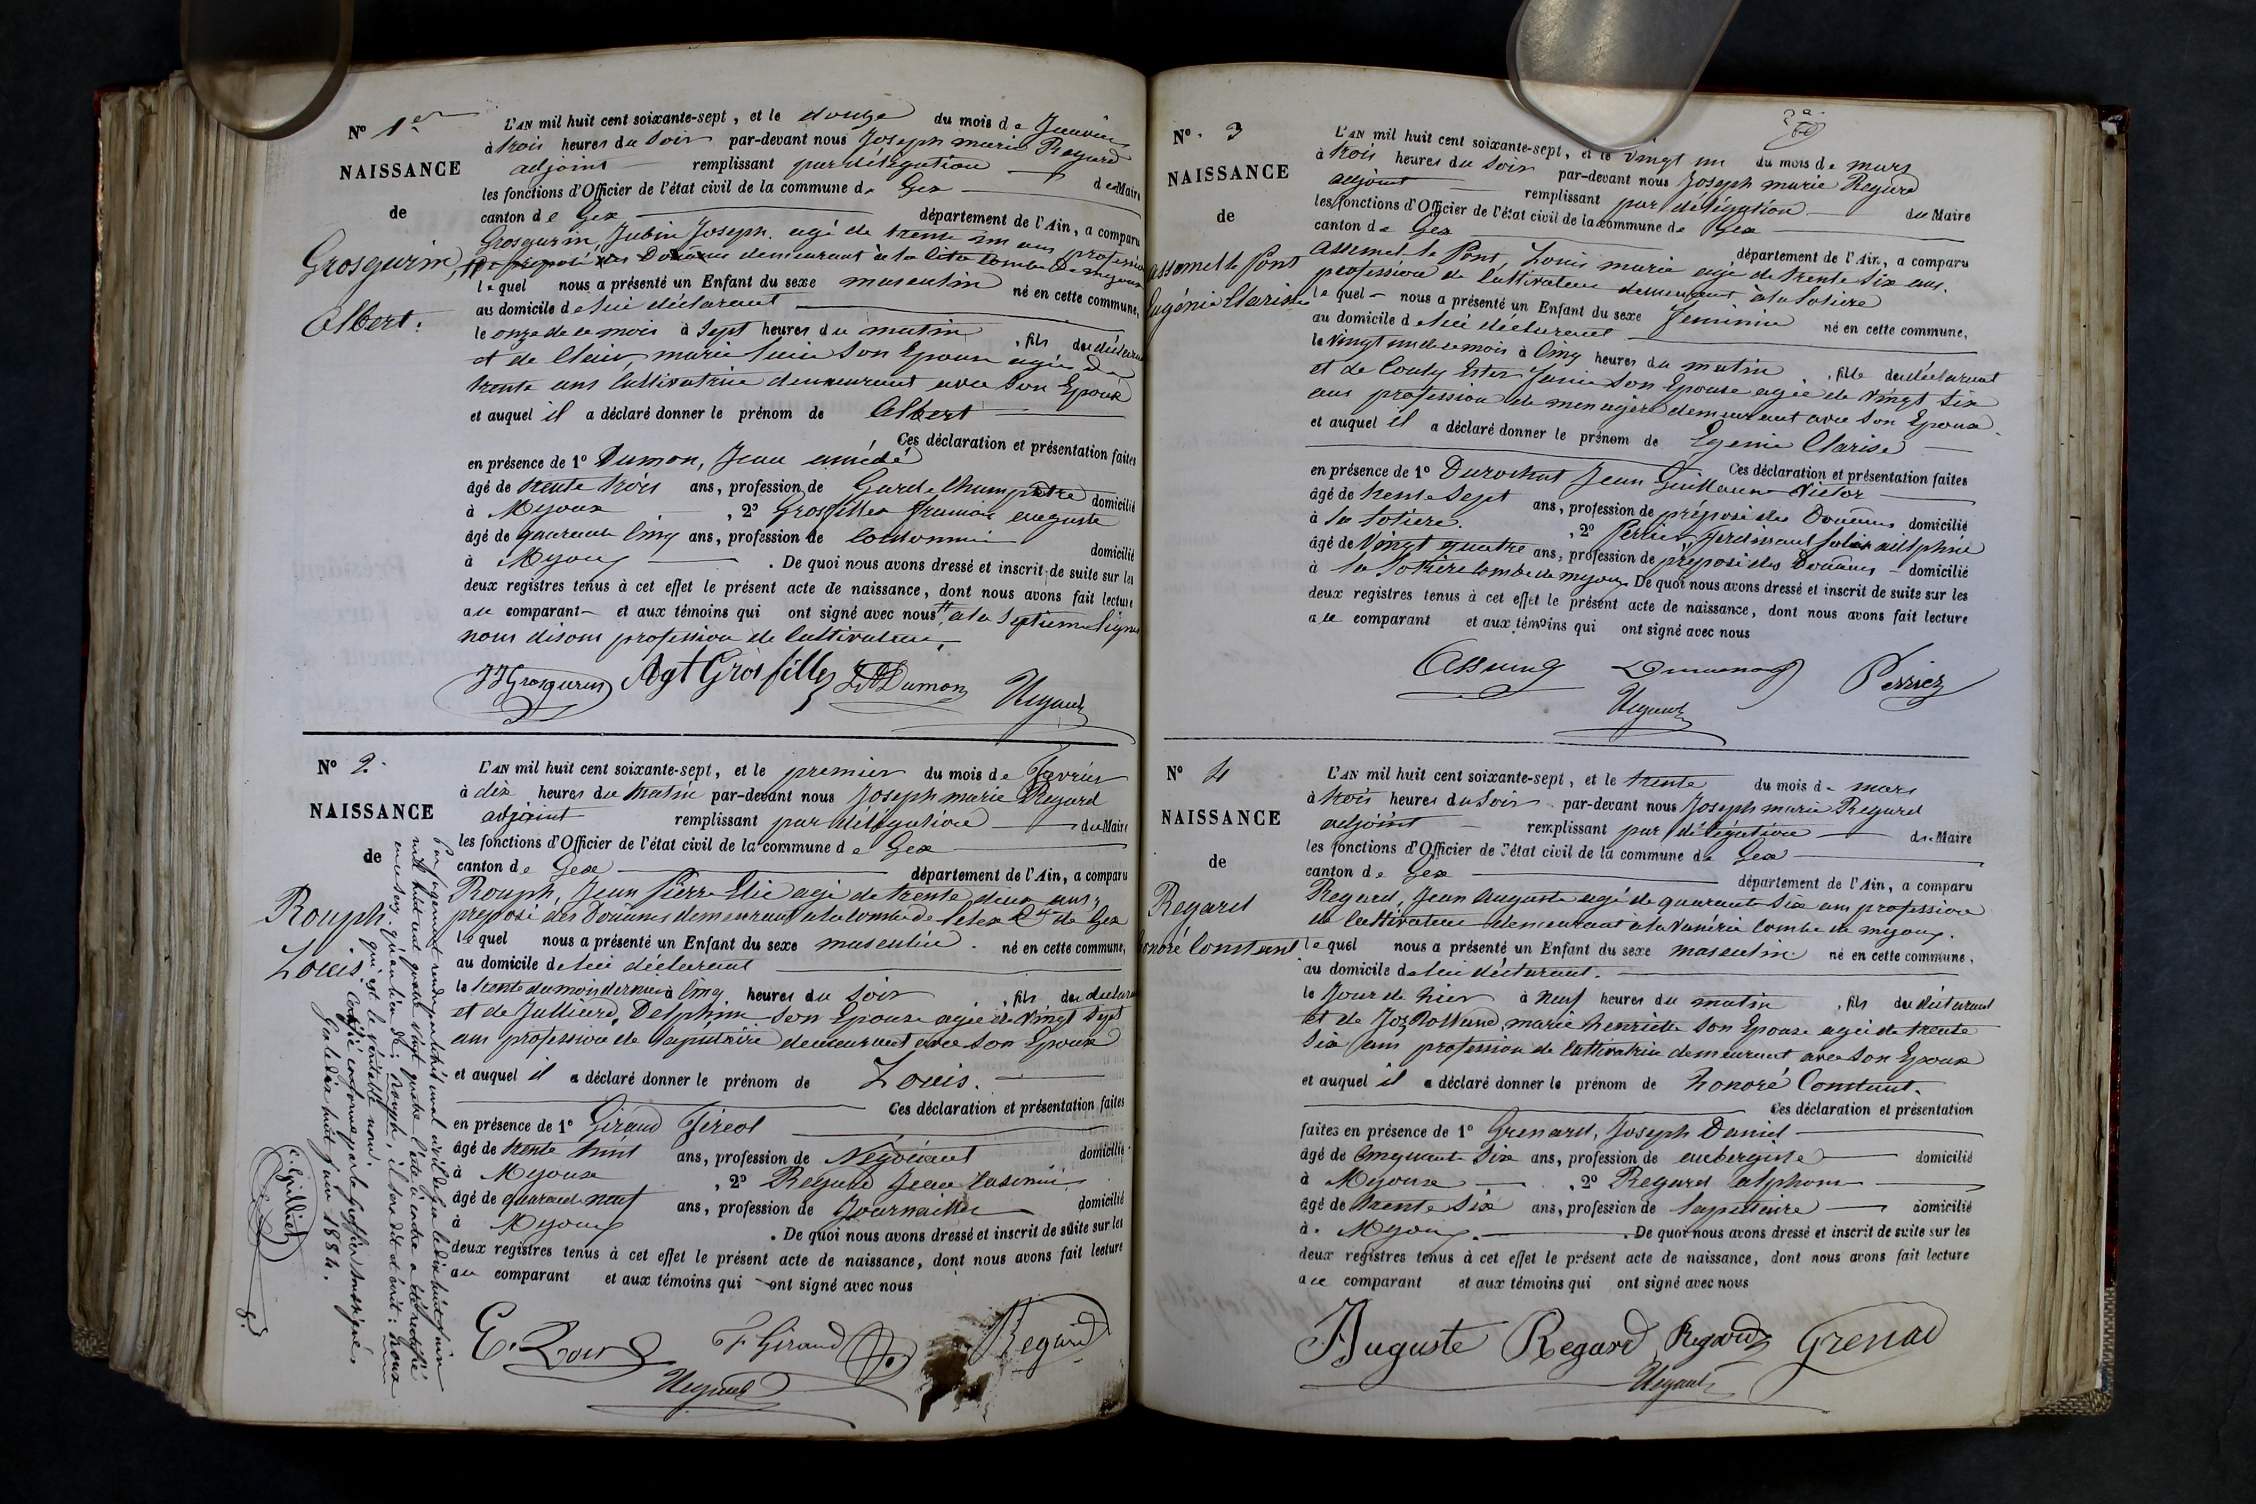 N° 1er
NAISSANCE
de
Grosgurin,
Albert.
L'AN mil huit cent soixante-sept, et le douze du mois de Janvier
à trois heures du Soir par-devant nous Joseph marie Regard
adjoint remplissant par délégation de Maire
les fonctions d'Officier de l'état civil de la commune de Gex
canton de Gex département de l'Ain, a comparu
Grosgurin, Jubin Joseph. agé de trente un ans profession
de préposé des Douanes demeurant à la Combe de Mijoux
lequel nous a présenté un Enfant du sexe masculin né en cette commune,
au domicile de lui déclarant
le onze de ce mois à Sept heures du matin, fils du déclarant
et de Clair, marie Son Epouse agée de
trente ans Cultivatrice demeurant avec Son Epoux
et auquel il a déclaré donner le prénom de Albert
Ces déclaration et présentation faites
en présence de 1° Dumon, Jean amédé
âgé de trente trois ans, profession de Garde Champetre domicilié
à Mijoux, 2° Grosfilley auguste
âgé de quarante Cinq ans, profession de Cordonnier domicilié
à Mijoux. De quoi nous avons dressé et inscrit de suite sur les
deux registres tenus à cet effet le présent acte de naissance, dont nous avons fait lecture
au comparant et aux témoins qui ont signé avec nous, a la Septieme Ligne
nous disons profession de Cultivateur.
JJGrosgurin Agt Grosfilley JADumon Regard
N° 2.
NAISSANCE
de
Rouph.
Louis.
L'AN mil huit cent soixante-sept, et le premier du mois de Fevrier
à dix heures du Matin par-devant nous Joseph marie Regard
adjoint remplissant par délégation du Maire
les fonctions d'Officier de l'état civil de la commune de Gex
canton de Gex département de l'Ain, a comparu
Rouph, Jean Pierre Elie agé de trente deux ans,
préposé des Douanes demeurant a la Combe de de Gex
lequel nous a présenté un Enfant du sexe masculin. né en cette commune,
au domicile de lui déclarant
le trente du mois dernier à Cinq heures du Soir, fils du déclarant
et de Julliard, Delphine Son Epouse agée de Vingt Sept
ans profession de lapidaire demeurant avec Son Epoux
et auquel il a déclaré donner le prénom de Louis.
Ces déclaration et présentation faites
en présence de 1° Giraud Féréol
âgé de trente huit ans, profession de Négociant domicilié
à Mijoux, 2° Regard Jean
âgé de quarante neuf ans, profession de Journalier domicilié
à Mijoux. De quoi nous avons dressé et inscrit de suite sur les
deux registres tenus à cet effet le présent acte de naissance, dont nous avons fait lecture
au comparant et aux témoins qui ont signé avec nous
E. Roux F Giraud Regard
Regard
Par jugement rendu par le tribunal civil de Gex le dix huit juin
mil huit cent quatre vingt quatre l'acte ci contre a été rectifié
en ce sens qu'au lieu de: Rouph, il sera dit et écrit: Roux
qui est le véritable nom.
Certifié conforme par le greffier soussigné,
Gex le dix huit juin 1884.
N° 3
NAISSANCE
de
assomel le Pont
Eugénie Clarisse
2e
L'AN mil huit cent soixante-sept, et le Vingt un du mois de mars
à trois heures du Soir par-devant nous Joseph marie Regard
adjoint remplissant par délégation du Maire
les fonctions d'Officier de l'état civil de la commune de Gex
canton de Gex département de l'Ain, a comparu
assomel le Pont, Louis marie agé de trente Six ans.
profession de Cultivateur demeurant à la
lequel nous a présenté un Enfant du sexe feminin né en cette commune,
au domicile de lui déclarant
le Vingt un de ce mois à Cinq heures du matin, fille du déclarant
et de Ester Son Epouse agée de Vingt Six
ans profession de menagère demeurant avec Son Epoux
et auquel il a déclaré donner le prénom de Egenie Clarise
Ces déclaration et présentation faites
en présence de 1° Durochat Jean Guillaume Victor
âgé de trente Sept ans, profession de préposé des Douanes domicilié
à la. 2° Perrier, ferdinand
âgé de Vingt quatre ans, profession de préposé des Douanes domicilié
à la combe de mijoux De quoi nous avons dressé et inscrit de suite sur les
deux registres tenus à cet effet le présent acte de naissance, dont nous avons fait lecture
au comparant et aux témoins qui ont signé avec nous
Perrier
Regard
N° 4
NAISSANCE
de
Regard
honoré Constant.
L'AN mil huit cent soixante-sept, et le trente du mois de mars
à trois heures du Soir par-devant nous Joseph marie Regard
adjoint remplissant par délégation du Maire
les fonctions d'Officier de l'état civil de la commune de Gex
canton de Gex département de l'Ain, a comparu
Regard, Jean Auguste agé de quarante Six ans profession
de Cultivateur demeurant à la combe de mijoux.
lequel nous a présenté un Enfant du sexe masculin né en cette commune,
au domicile de lui déclarant.
le Jour de hier à Neuf heures du matin, fils du déclarant
et de marie henriette Son Epouse agée de trente
Six ans profession de Cultivatrice demeurant avec Son Epoux
et auquel il a déclaré donner le prénom de honoré Constant.
Ces déclaration et présentation
faites en présence de 1° Grenard, Joseph Daniel
âgé de Cinquante Six ans, profession de aubergiste domicilié
à Mijoux. 2° Regard alphonse
âgé de trente Six ans, profession de lapidaire domicilié
à. Mijoux. De quoi nous avons dressé et inscrit de suite sur les
deux registres tenus à cet effet le présent acte de naissance, dont nous avons fait lecture
au comparant et aux témoins qui ont signé avec nous
Auguste Regard Regard Grenard
Regard